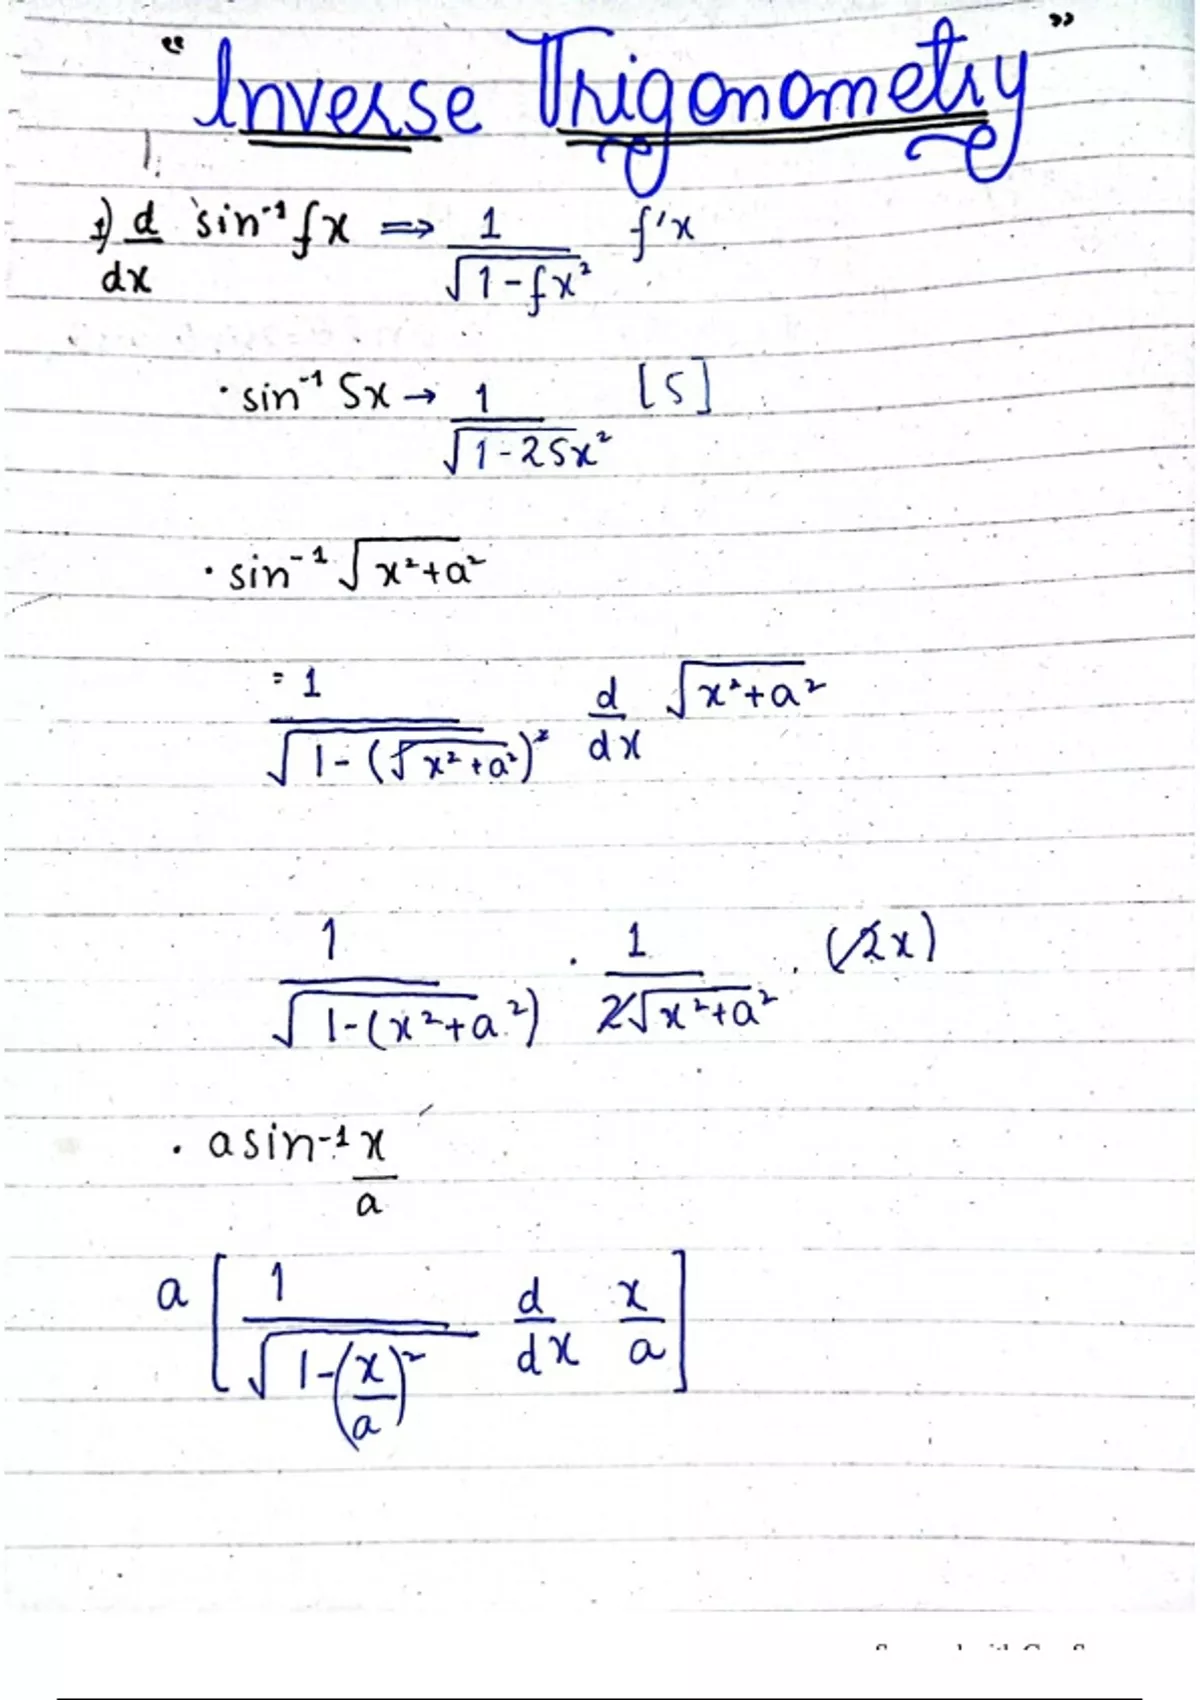 “Inverse Trigonometry”
1.
1) d/dx sin⁻¹ fx ⇒ 1/√(1-fx²) f'x
· sin⁻¹ 5x → 1/√(1-25x²) [5]
· sin⁻¹ √(x²+a²)
= 1/√(1-(√(x²+a²))²) d/dx √(x²+a²)
1/√(1-(x²+a²)) · 1/2√(x²+a²) . (2x)
· a sin⁻¹ x/a
a [ 1/√(1-(x/a)²) d/dx x/a ]